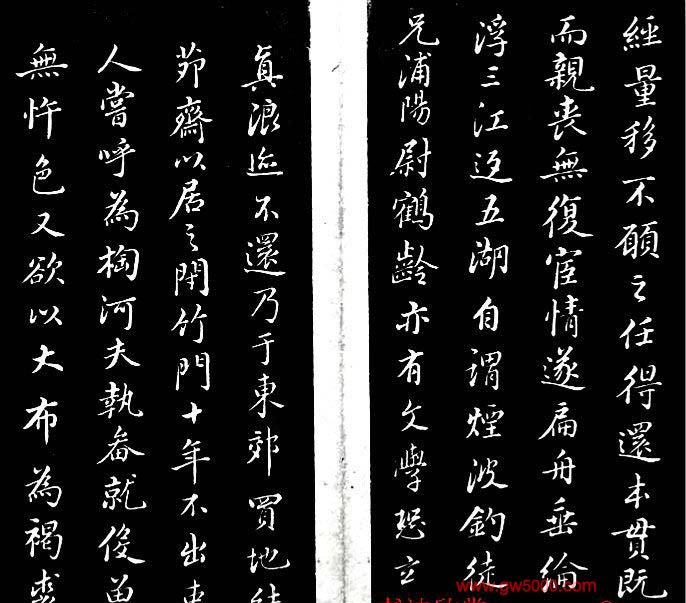 經量移不願之任得還本貫既
而親喪無復宦情遂扁舟垂綸
浮三江五湖自謂煙波釣徒
兄浦陽尉鶴齡亦有文學恐玄
真浪迹不還乃于東郊買地結
茆齋以居之閉竹門十年不出吏
人嘗呼為掏河夫執畚就役曾
無忤色又欲以大布為褐裘
www.gw5000.com